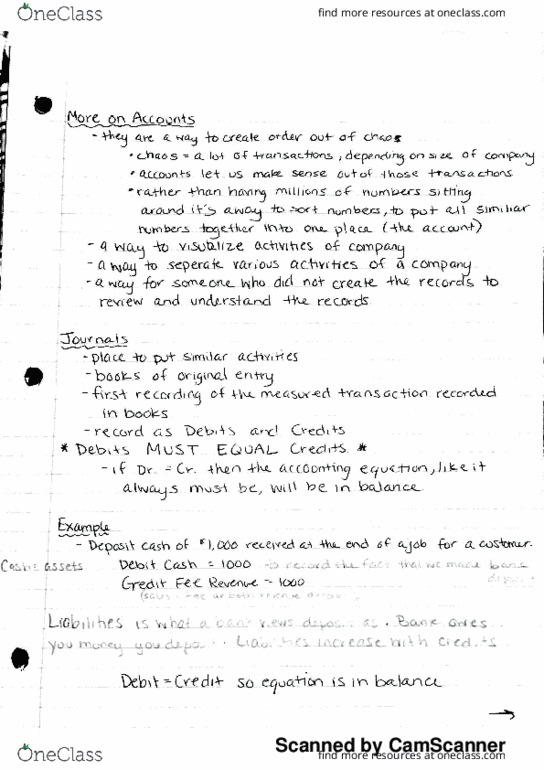 OneClass
find more resources at oneclass.com
More on Accounts
- they are a way to create order out of chaos
• chaos = a lot of transactions, depending on size of company
• accounts let us make sense out of those transactions
• rather than having millions of numbers sitting
around it's a way to sort numbers, to put all similiar
numbers together into one place (the account)
- a way to visualize activities of company
- a way to seperate various activities of a company
- a way for someone who did not create the records to
review and understand the records
Journals
- place to put similar activities
- books of original entry
- first recording of the measured transaction recorded
in books
- record as Debits and Credits
* Debits MUST EQUAL Credits *
- if Dr. = Cr. then the accounting equation, like it
always must be, will be in balance
Example
- Deposit cash of $1,000 received at the end of a job for a customer.
Cash = assets Debit Cash = 1000 to record the fact that we made bank
Credit Fee Revenue = 1000
Liabilities is what a bank views as. Bank owes
you money you Liabilities increase with credits
Debit = Credit so equation is in balance
→
Scanned by CamScanner
OneClass
find more resources at oneclass.com